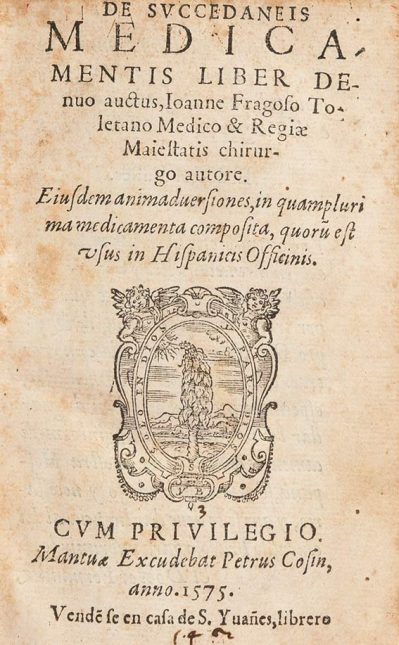 DE SVCCEDANEIS
MEDICA-
MENTIS LIBER DE-
nuo auctus, Ioanne Fragoso To-
letano Medico & Regiæ
Maiestatis chirur-
go autore.
Eiusdem animaduersiones, in quampluri
ma medicamenta composita, quorũ est
vsus in Hispanicis Officinis.
CVM PRIVILEGIO.
Mantuæ Excudebat Petrus Cosin,
anno. 1575.
Vendẽ se en casa de S. Yuañes, librero